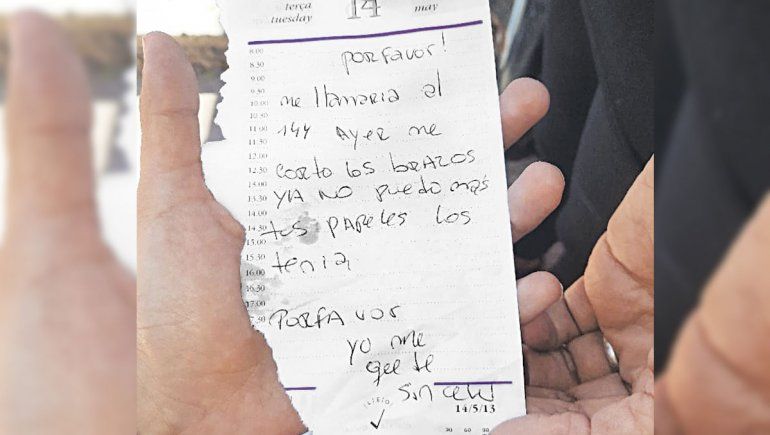 terça 14 may
tuesday
8.00
8.30
9.00
9.30
10.00
10.30
11.00
11.30
12.00
12.30
13.00
13.30
14.00
14.30
15.00
15.30
16.00
16.30
17.00
17.30
porfavor!
me llamaria al
144 Ayer me
corto los brazos
ya no puedo más
tus papeles los
tenia
Porfavor
yo me
que te
sin celu
14/5/13